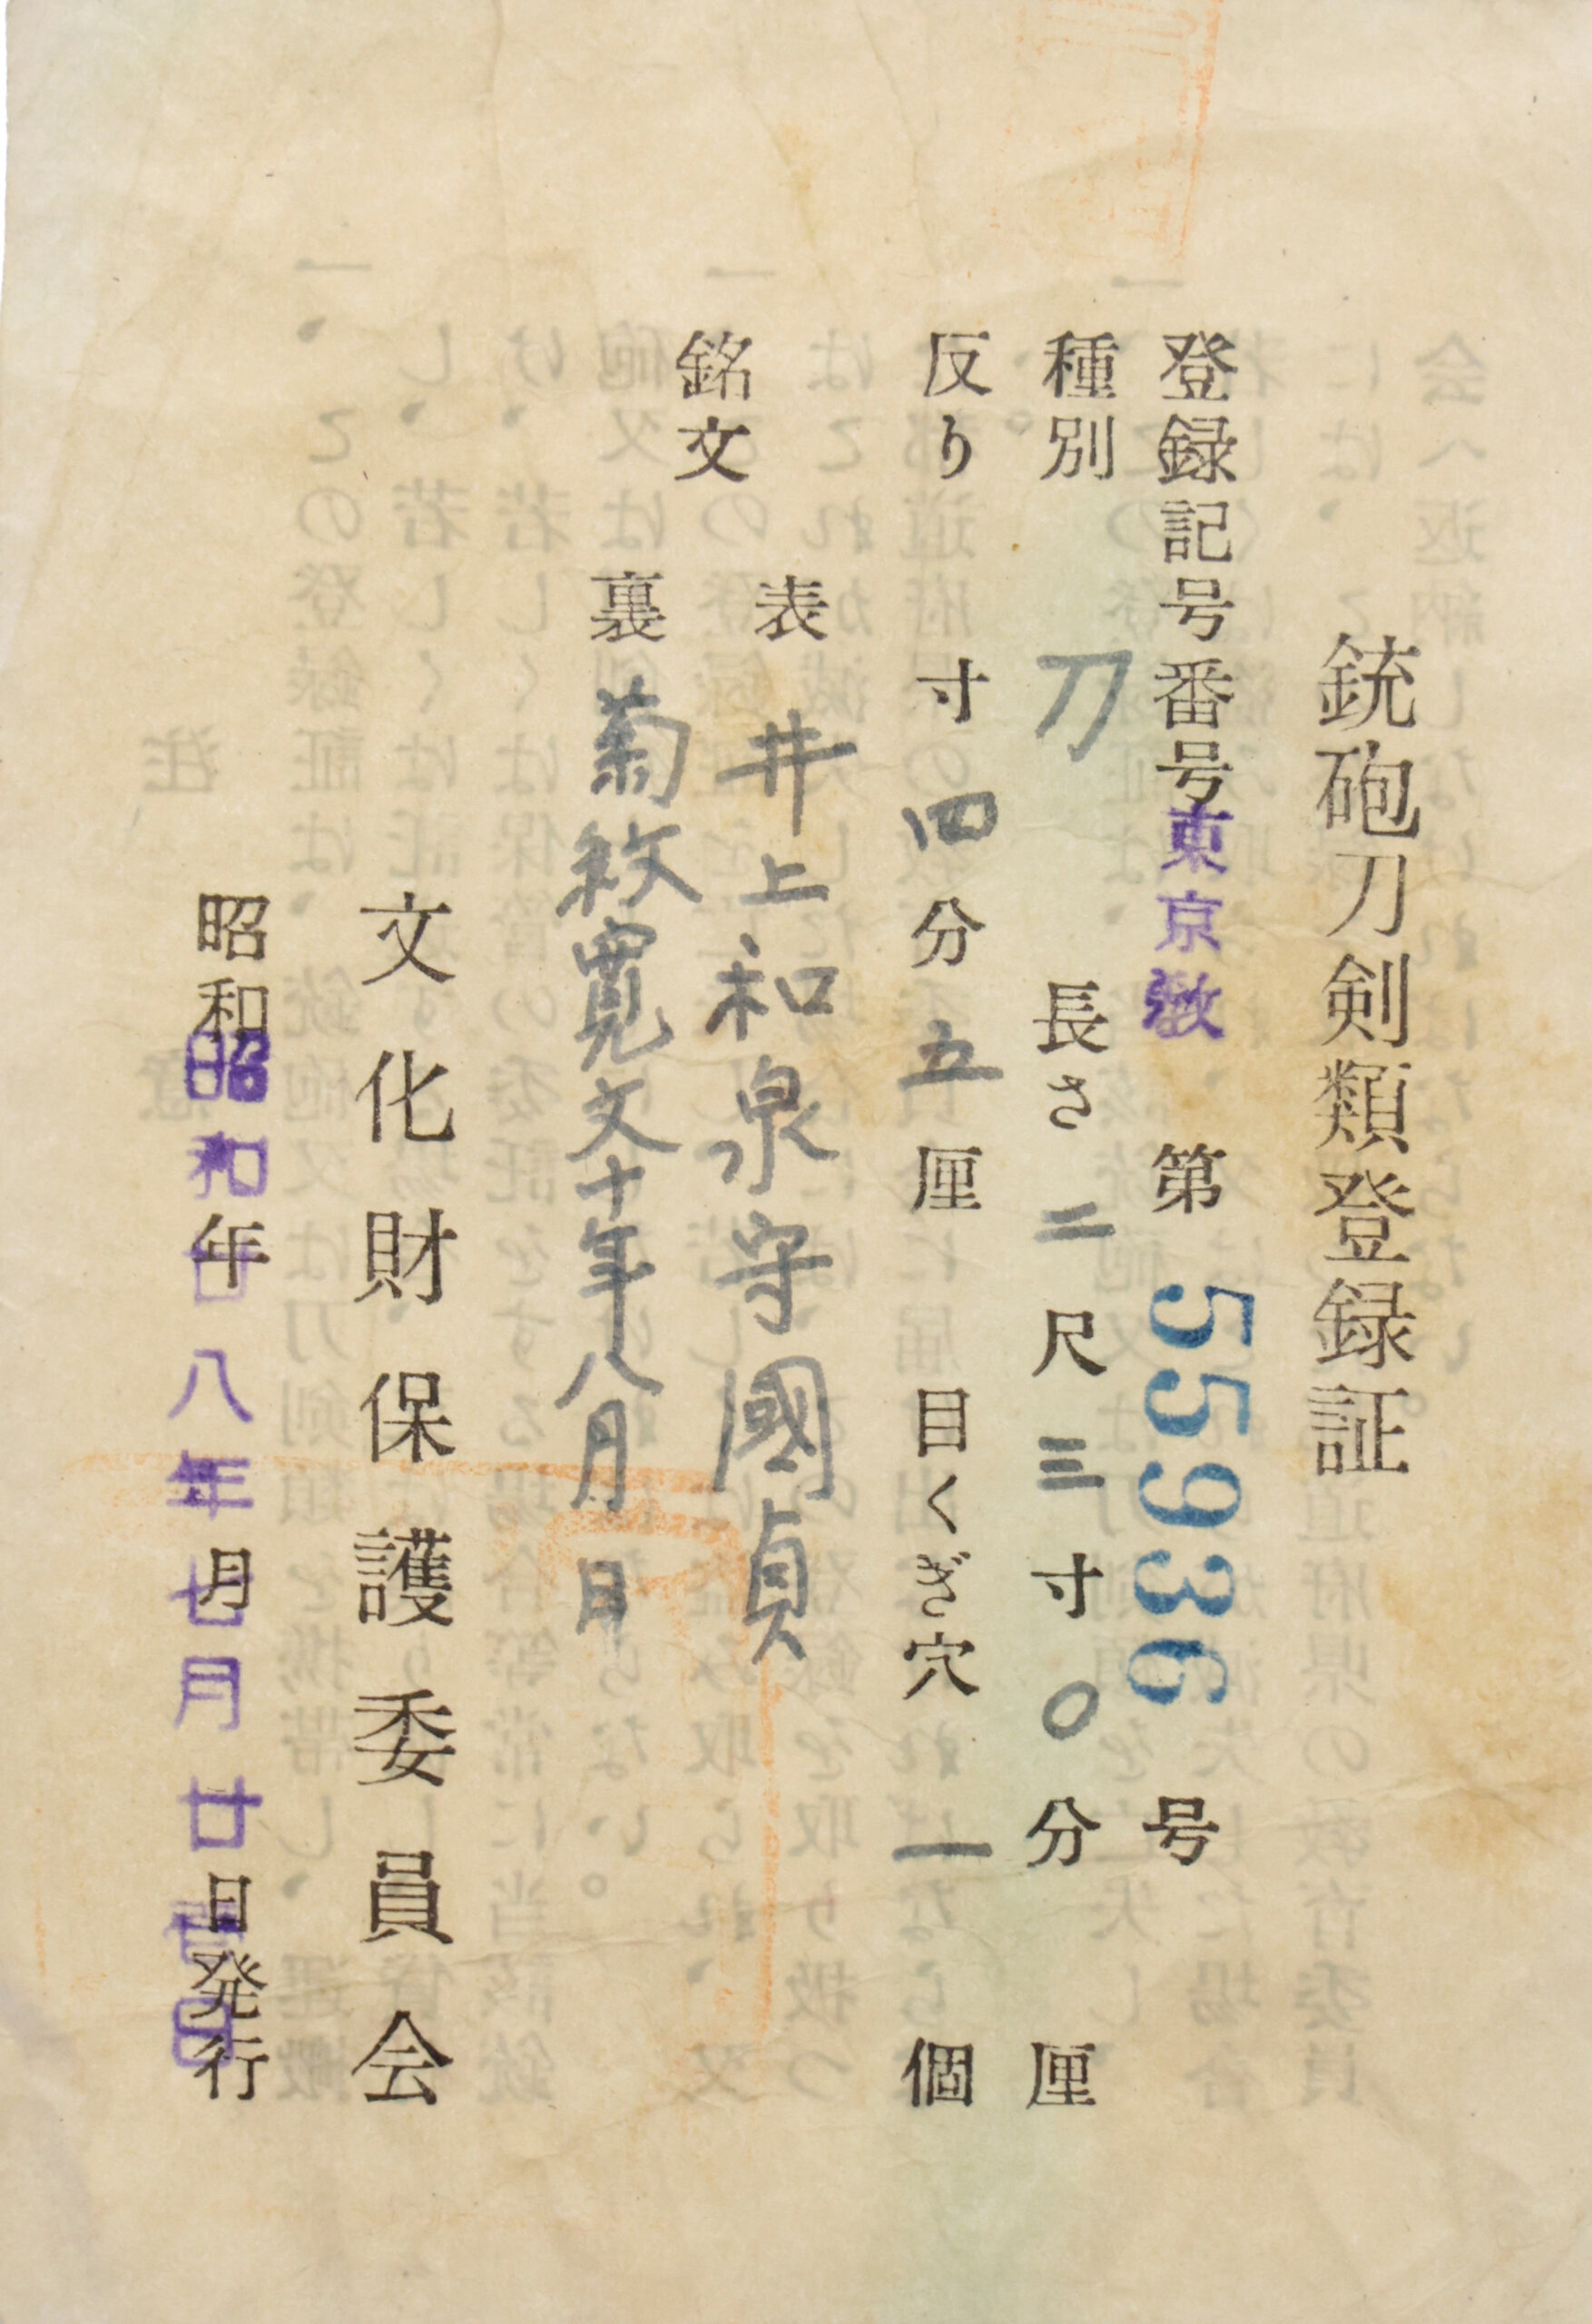 銃砲刀剣類登録証
登録記号番号東京 第55936号
種別 刀 長さ 二尺三寸〇分 厘
反り 寸四分五厘 目くぎ穴 一個
銘文
表 井上和泉守國貞
裏 菊紋寛文十年八月日
文化財保護委員会
昭和 年 月 日発行
昭和廿八年七月廿 日